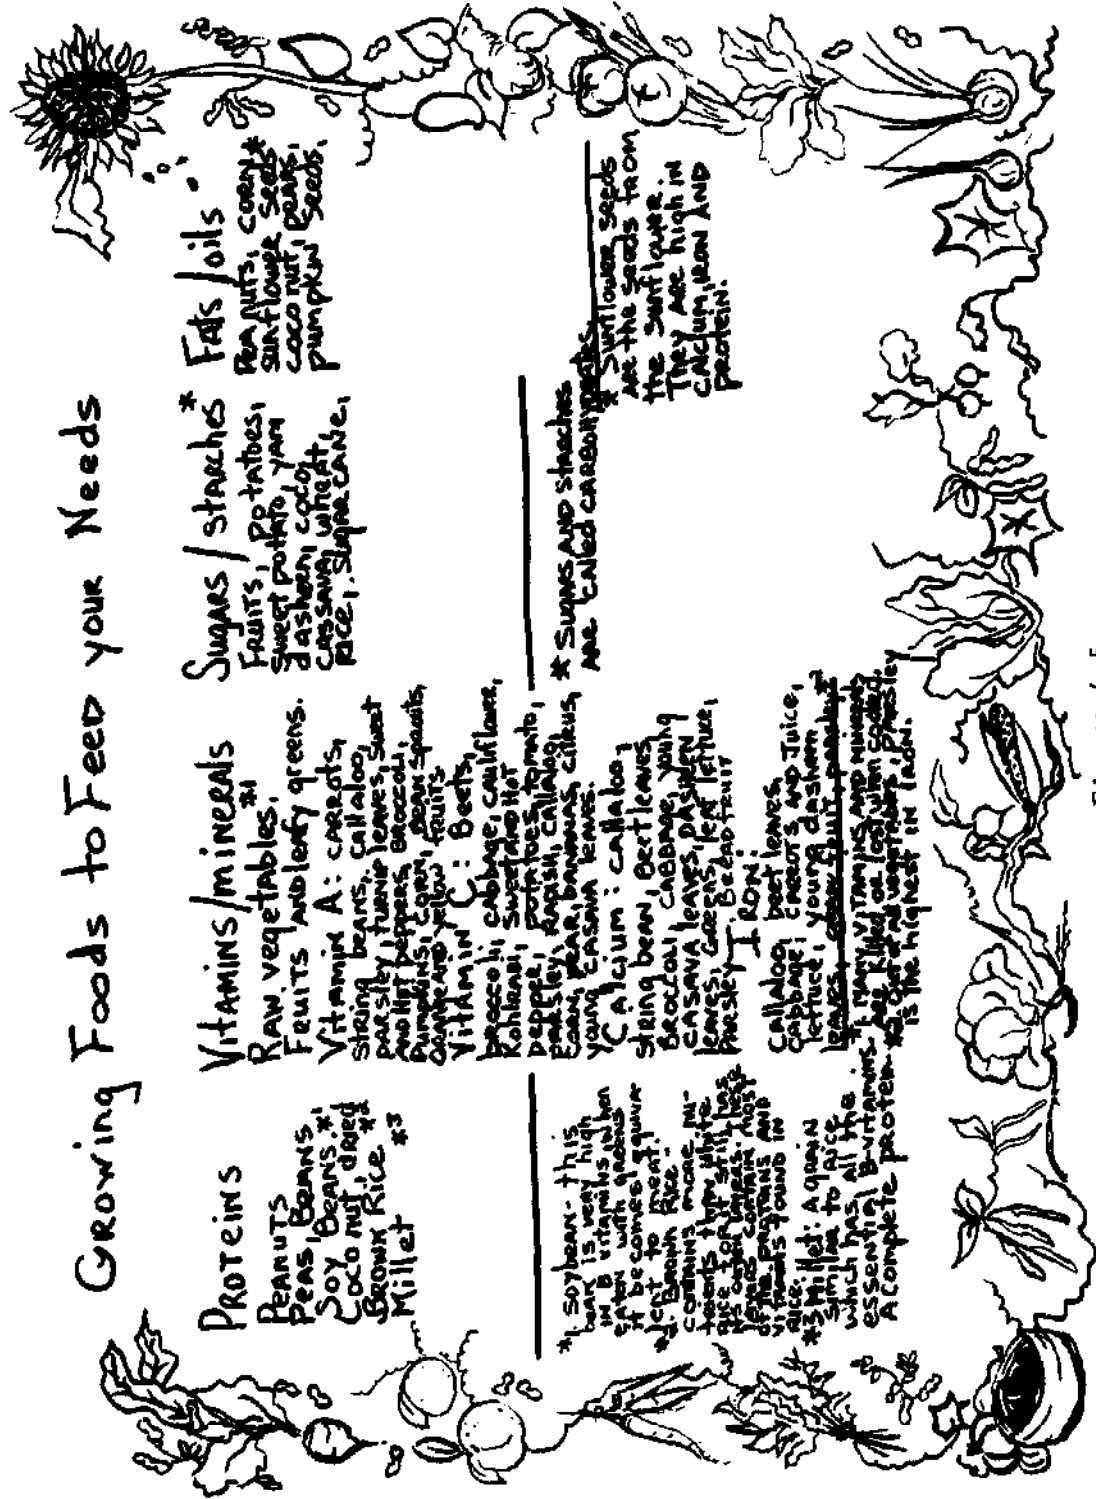 Growing Foods to Feed your Needs
Proteins
Peanuts
Peas, Beans
Soy Beans.*1
Coconut, dried
Brown Rice *2
Millet *3
*1. Soybean - this
bean is very high
in B vitamins when
eaten with greens
it becomes equiva-
lent to meat!
*2. Brown Rice -
contains more nu-
trients than white
rice for it still has
its outer layers. These
layers contain most
of the proteins and
vitamins found in
rice.
*3 Millet: A grain
similar to rice
which has all the
essential B-vitamins.
A complete protein
Vitamins/minerals
Raw vegetables, *1
Fruits and leafy greens.
Vitamin A: carrots,
string beans, callaloo,
parsley, turnip leaves, sweet
and hot peppers, broccoli,
pumpkins, corn, bean sprouts,
orange and yellow fruits
Vitamin C: Beets,
broccoli, cabbage, cauliflower,
Kohlrabi, sweet and hot
pepper, potatoes, tomato,
parsley, radish, callaloo,
corn, pear, bananas, citrus,
young casava leaves.
Calcium: callaloo,
string bean, Beet leaves,
Broccoli, cabbage, young
casava leaves, dashen
leaves, greens, leaf lettuce,
parsley, Breadfruit
Iron:
callaloo, beet leaves,
cabbage, carrots and juice,
lettuce, young dashen
leaves, parsley *2
*1. Many vitamins and minerals
are killed or lost when cooked.
*2 Out of all vegetables, parsley
is the highest in iron.
Sugars/starches *
Fruits, potatoes,
sweet potato yam
dashen, coco,
cassava, wheat,
rice, sugar cane,
* Sugars and starches
are called carbohydrates.
Fats/oils
Peanuts, corn *
sunflower seeds
coconut, pears,
pumpkin seeds,
* Sunflower seeds
are the seeds from
the sunflower.
They are high in
calcium, iron and
protein.